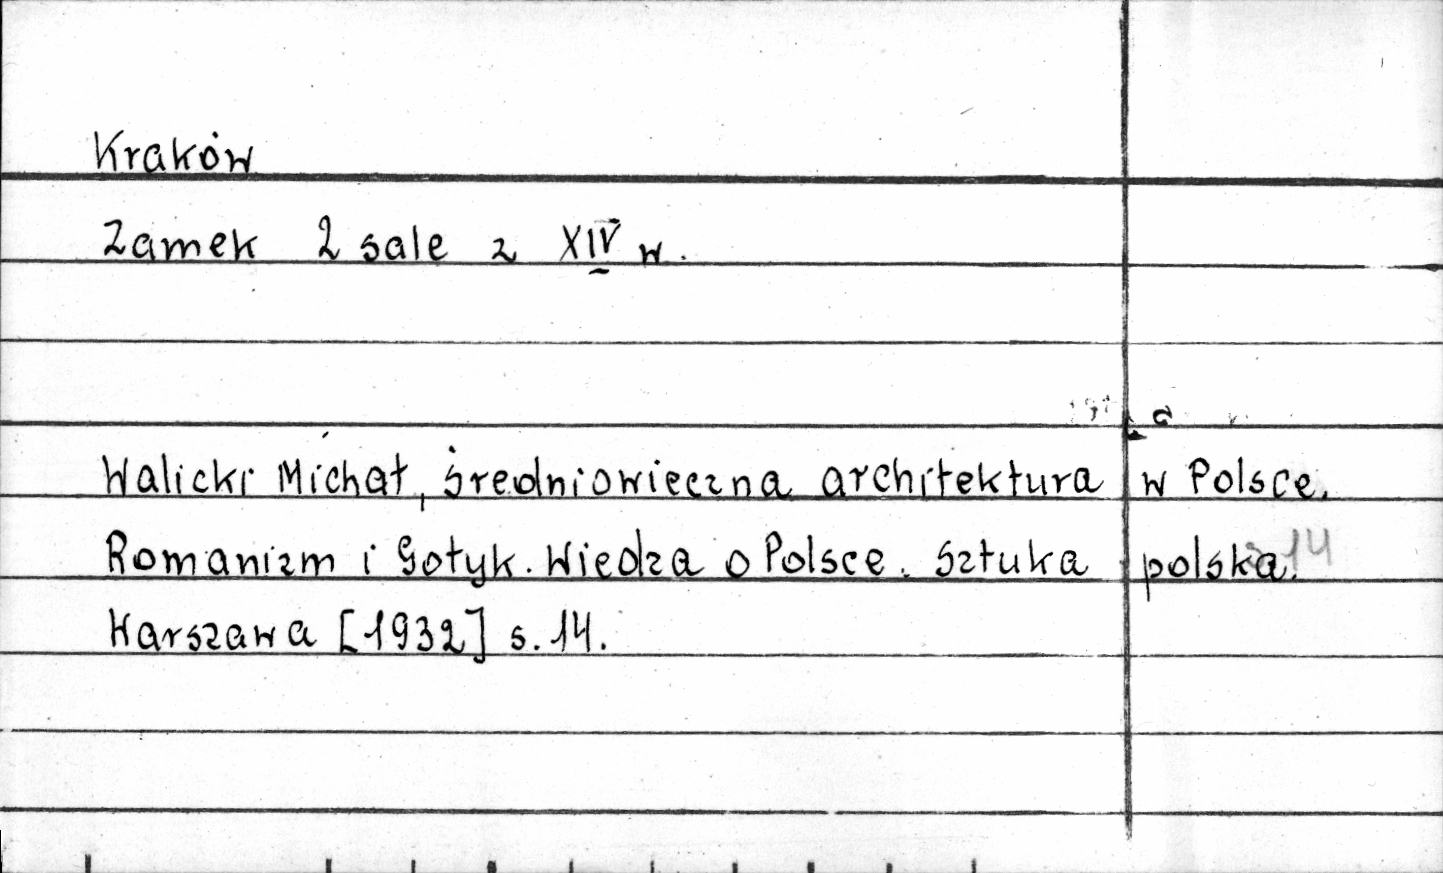 Kraków
Zamek 2 sale z XIV w.
Walicki Michał, Średniowieczna architektura w Polsce.
Romanizm i Gotyk. Wiedza o Polsce. Sztuka polska.
14
Warszawa [1932] s. 14.